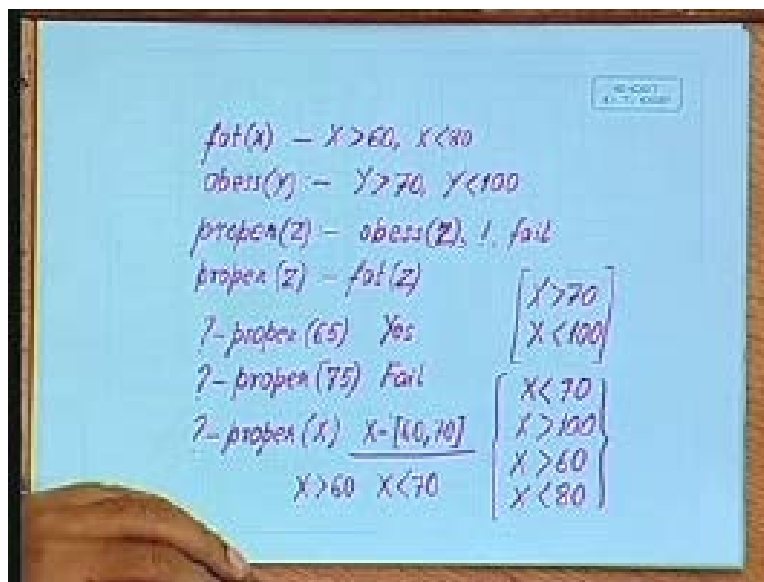 fat(x) – X>60, X<80
obess(y) :– Y>70, Y<100
proper(z) – obess(z), !, fail
proper(z) – fat(z)
?– proper(65) Yes
?– proper(75) Fail
?– proper(X) X=[60,70]
X>60 X<70
X>70
X<100
X<70
X>100
X>60
X<80